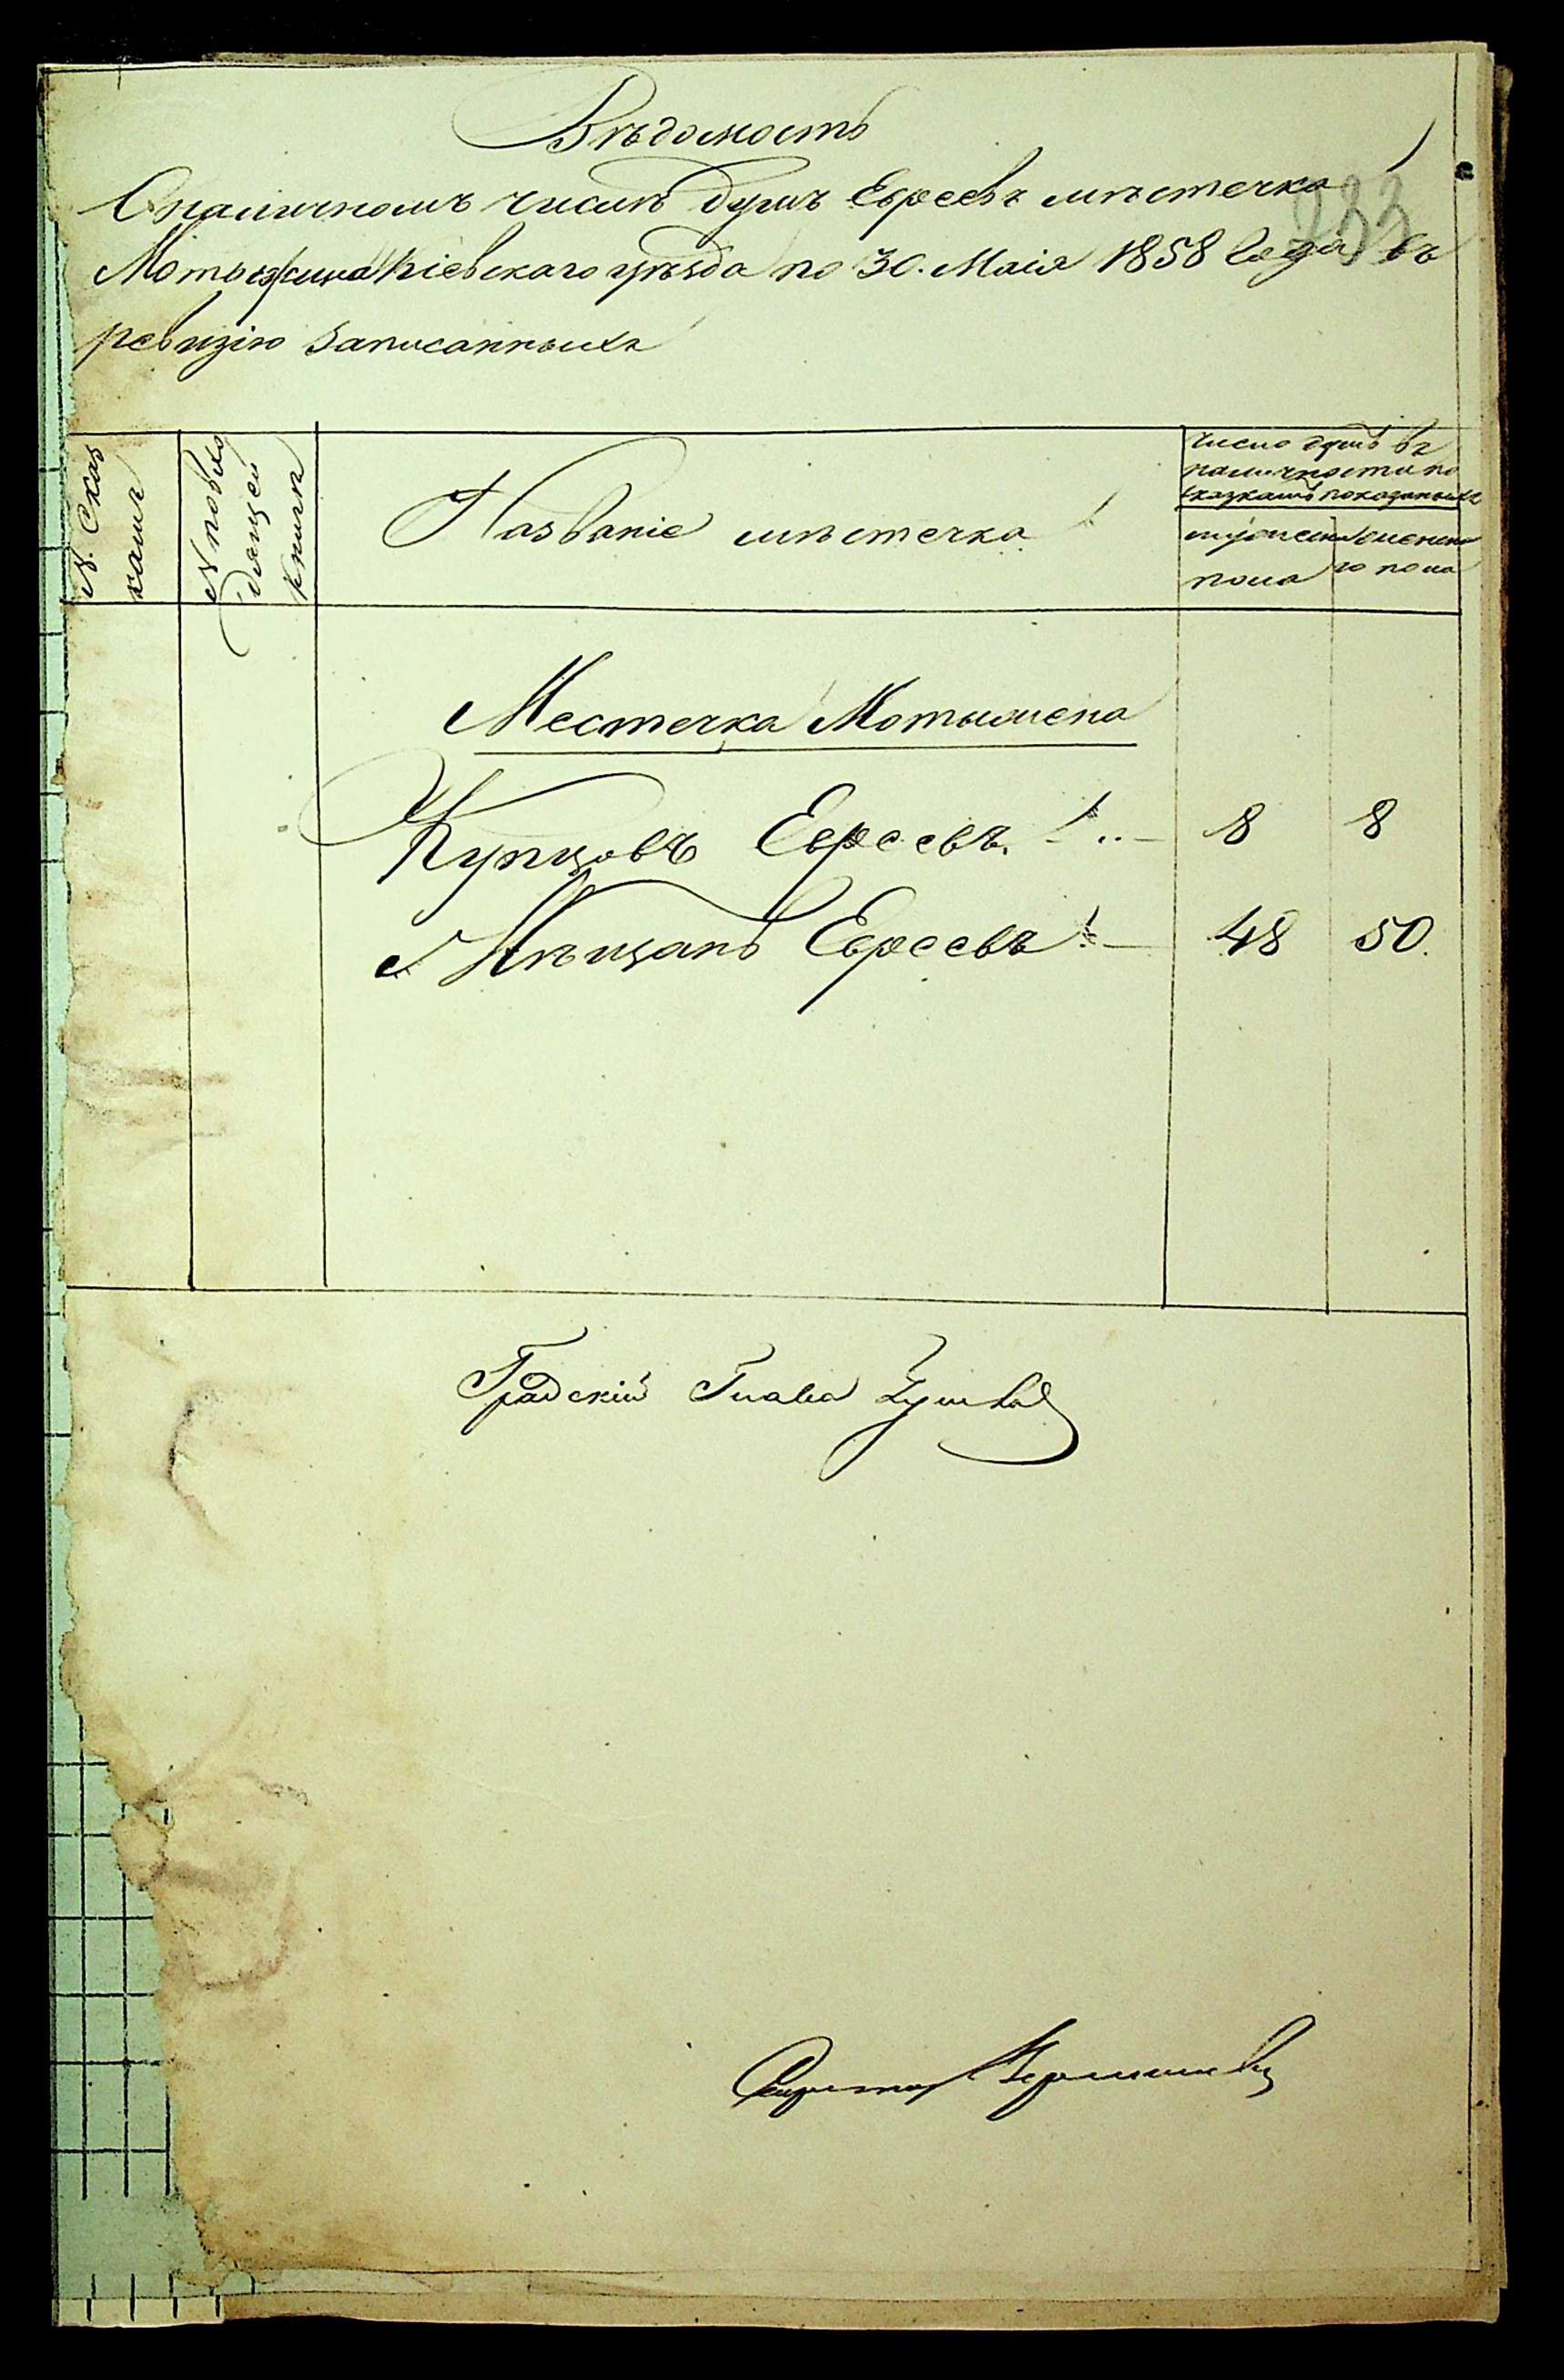 Вѣдомость
О наличномъ числѣ душъ Евреевъ мѣстечка
233
Мотыжина Кіевскаго уѣзда по 30. Маія 1858 года въ
ревизію записанныхъ
№. Сказ
камъ
№ по вхо
дящей
книгѣ
Названіе мѣстечка
число душъ въ
наличности по
сказкамъ показаныхъ
мужеска
пола
женска
го пола
Местечка Мотыжена
Купцовъ Евреевъ. 8 8
Мѣщанъ Евреевъ 48 50.
Градскій Глава